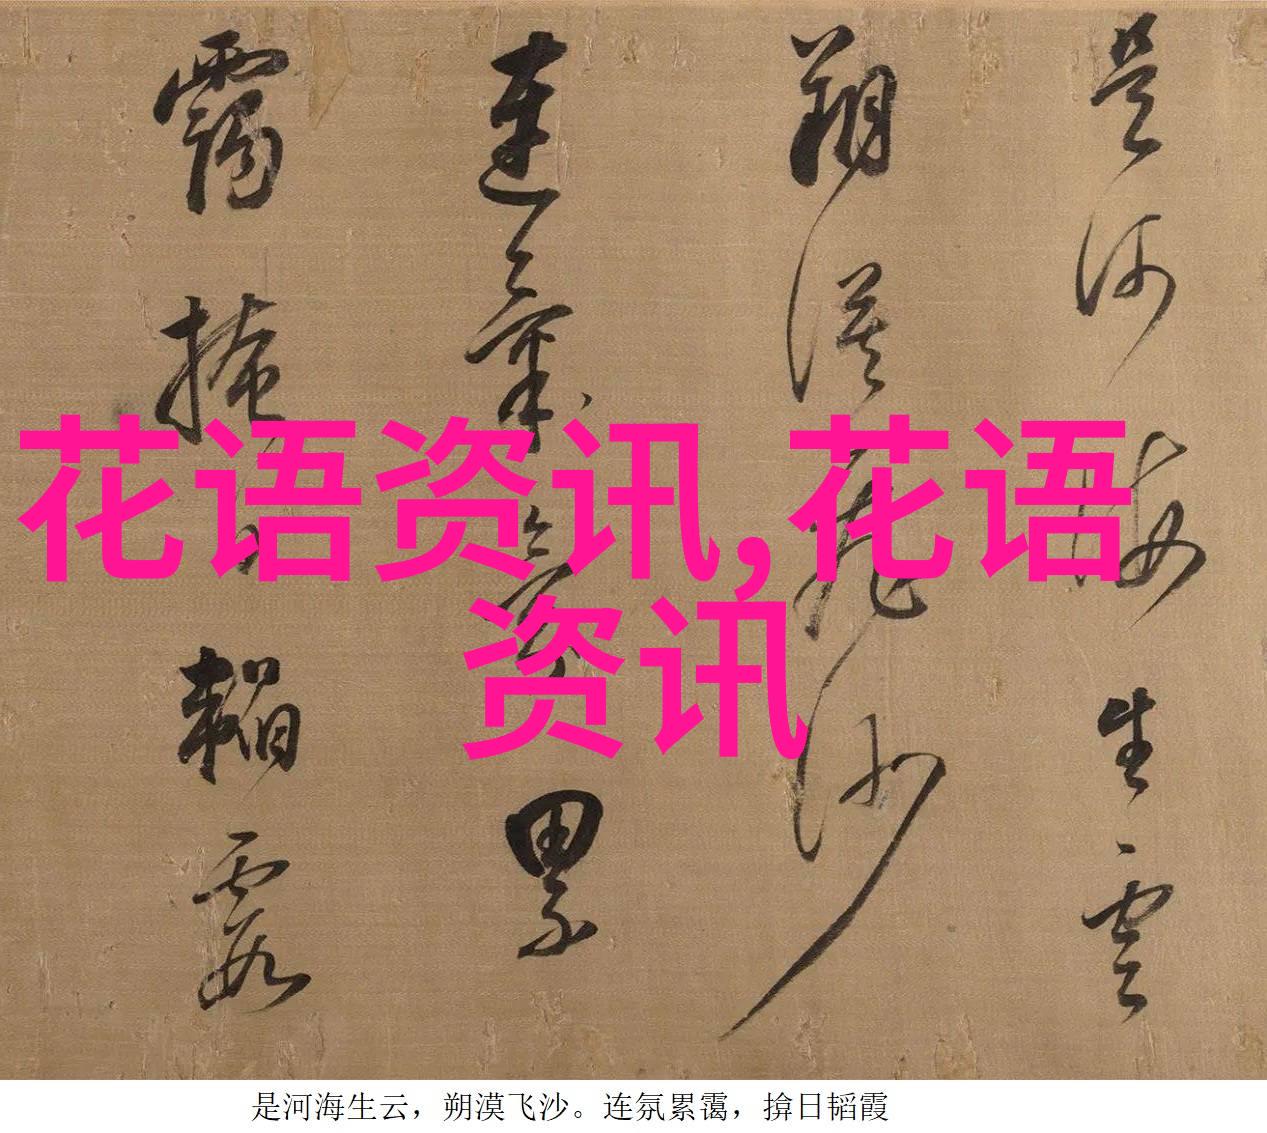 是河海生云
朔漠飞沙
连氛累
霭掩日韬霞
花语资讯,花语
资讯
是河海生云，朔漠飞沙。连氛累霭，揜日韬霞